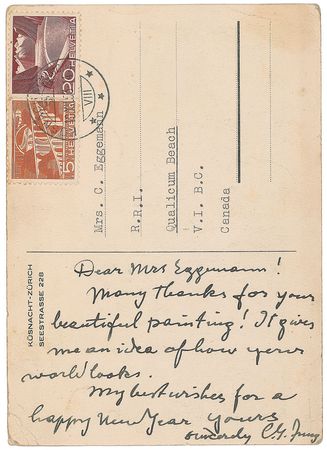 HELVETIA 20
HELVETIA 5
VIII
Mrs. C. Eggemann
R.R.I.
Qualicum Beach
V.I. B.C.
Canada
KÜSNACHT-ZÜRICH
SEESTRASSE 228
Dear Mrs Eggemann!
Many thanks for your
beautiful painting! It gives
me an idea of how your
world looks.
My best wishes for a
happy New Year yours
sincerely C. G. Jung